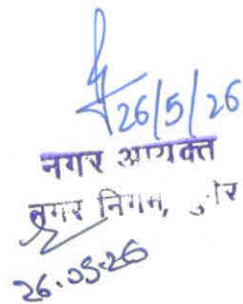 26/5/26
नगर आयुक्त
नगर निगम,
26.05.26